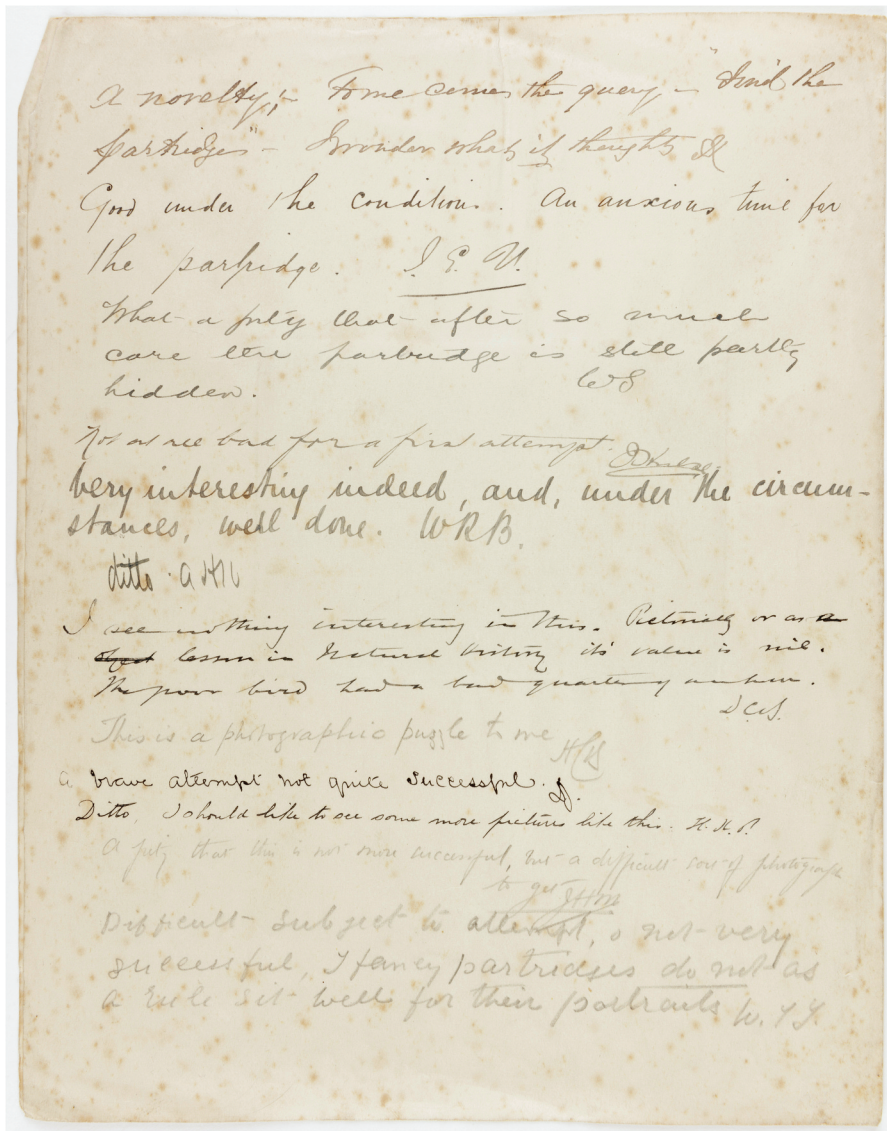 A novelty; - To me comes the query - "Find the
partridge" - I wonder what it thought
Good under the conditions. An anxious time for
the partridge. J. E. U.
What a pity that after so much
care the partridge is still partly
hidden. WS
Not at all bad for a first attempt.
Very interesting indeed, and, under the circum-
stances, well done. WRB.
ditto.
I see nothing interesting in this. Pictorially or as a
object lesson in Natural History its value is nil.
The poor bird had a bad quarter of an hour.
This is a photographic puzzle to me
A brave attempt not quite successful.
Ditto, I should like to see some more pictures like this. H. H. P.
A pity that this is not more successful, but a difficult sort of photograph
to get JHM
Difficult subject to attempt, & not very
successful, I fancy partridges do not as
a rule sit well for their portraits